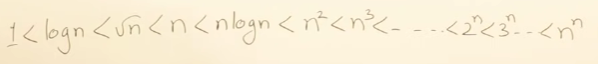 1 < log n < √n < n < n log n < n² < n³ < - - - - < 2ⁿ < 3ⁿ - - < nⁿ